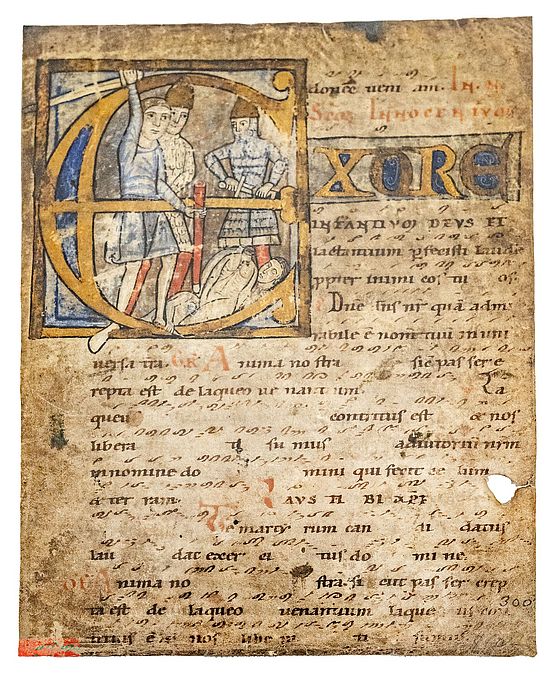 donec veni am. IN. N.
SCOR INNOCENTVO
EXORE
INFANTIVO DEUS ET
lactantium pfecisti laude
ppter inimicos tuos.
Dne dns nr quā adm
rabile ē nomen tuū in uni
versa tra. GRA Anima nostra sic passer e
repta est de laqueo venantium. La
queus contritus est & nos
liberati sumus adiutorium nrm
in nomine domini qui fecit celum
& terram. LAUS TIBI XPE
Te martyrum candidatus
laudat exercitus domine.
OF Anima nostra sicut passer erep
ta est de laqueo venantium laqueus contri
tus ē & nos liberati sumus
300